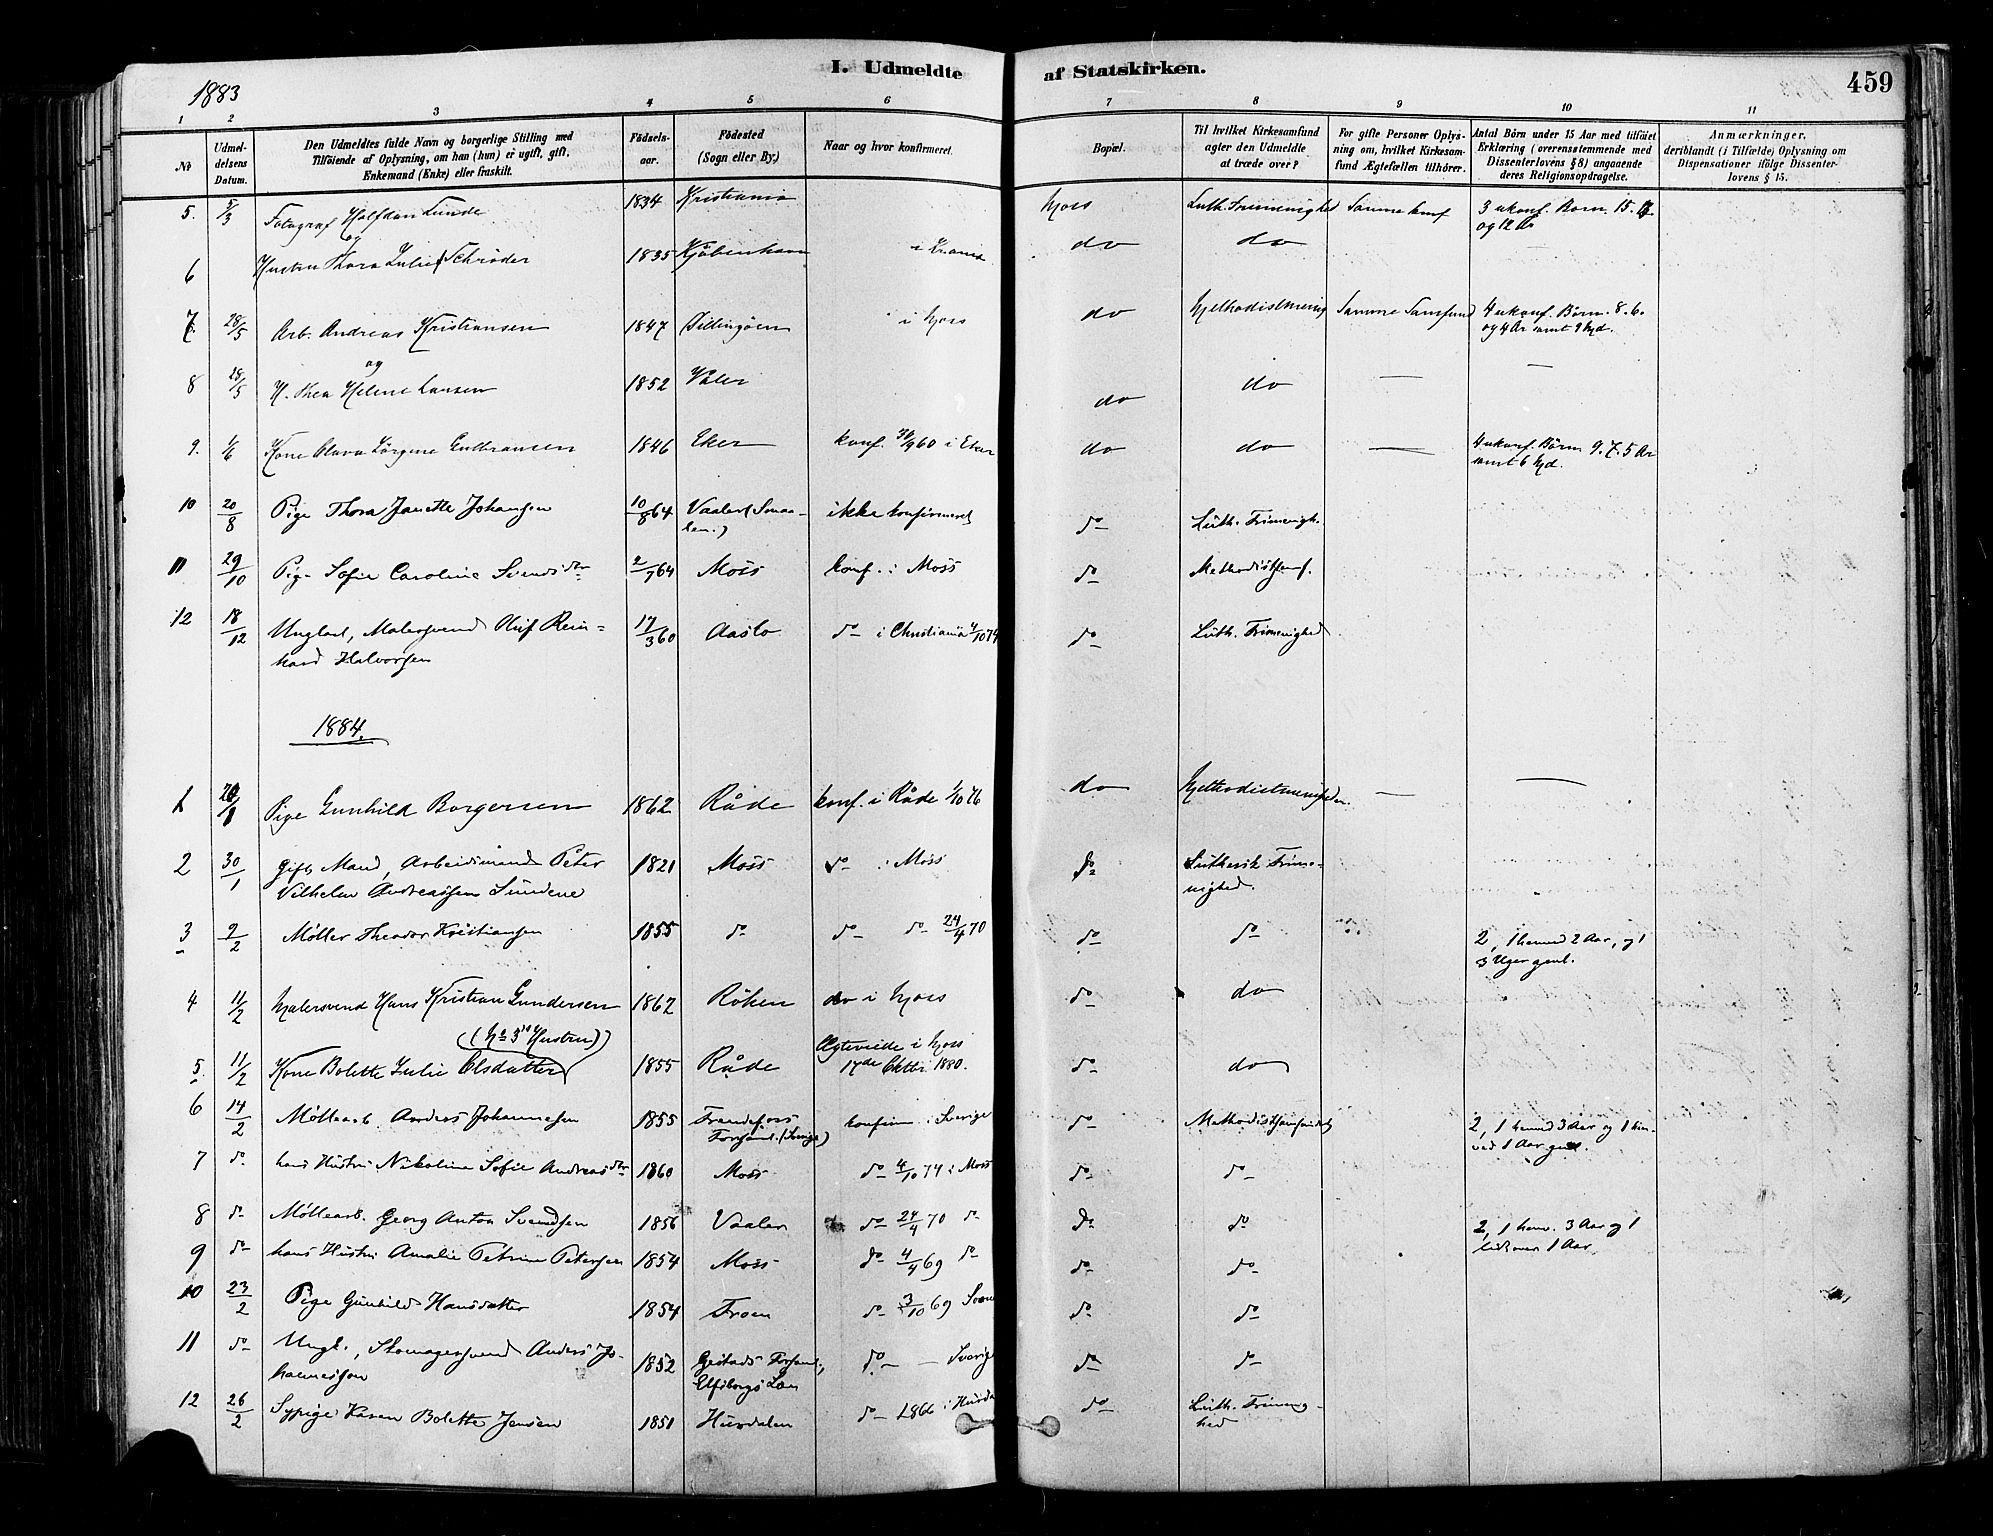 1883
I. Udmeldte af Statskirken.
459
1 2 3 4 5 6 7 8 9 10 11
No
Udmeldelsens Datum.
Den Udmeldtes fulde Navn og borgerlige Stilling med
Tilföiende af Oplysning, om han (hun) er ugift, gift,
Enkemand (Enke) eller fraskilt.
Födselsaar.
Födested
(Sogn eller By.)
Naar og hvor konfirmeret.
Bopæl.
Til hvilket Kirkesamfund
agter den Udmeldte
at træde over?
For gifte Personer Oplysning om, hvilket Kirkesamfund Ægtefællen tilhörer.
Antal Börn under 15 Aar med tilföiet
Erklæring (overensstemmende med
Dissenterlovens § 8) angaaende
deres Religionsopdragelse.
Anmærkninger,
deriblandt (i Tilfælde) Oplysning om
Dispensationer ifölge Dissenterlovens § 15.
5. 5/3 Fotograf Halfdan Lunde 1834 Kristiania Moss Luth. Frimenighed Samme 3 ukonf. Børn. 15.
og og 12 År
6 Hustru Thora Julie Schrøder 1835 Kjøbenhavn i do do
7 28/5 Arb. Andreas Kristiansen 1847 i Moss do Methodistmenig Samme Samfund 4 ukonf. Børn. 8. 6.
og og 4 År samt 9 Md.
8 28/5 H. Thea Helene Hansen 1852 Våler do do — —
9. 1/6 Kone Olava Jørgine Gulbransen 1846 Eker konf. 60 i Eker do do — 4 ukonf. Børn 9. 7. 5 År
samt 6 Md.
10 20/8 Pige Thora Janette Johansen 10/8 64 Vaaler (Smaalen.) ikke konfirmeret do Luth. Frimenigh.
11 29/10 Pige Sofie Caroline Svendsdtr 2/7 64 Moss konf. i Moss do Methodistsamf.
12 18/12 Ungkarl, Malersvend Oluf Reinhard Halvorsen 17/3 60 Aaslo do i Christiania 4/10 74 do Luth. Frimenighed
1884.
1 Pige Gunhild Borgersen 1862 Råde konf. i Råde 1/10 76 do Methodistmenigheden — —
2 30/1 Gift Mand, Arbeidsmand Peter
Vilhelm Andreassen Sundene 1821 Moss do i Moss do Luthersk Frimenighed.
3 9/2 Møller Theodor Kristiansen 1855 do do do 24/4 70 do do 2, 1 henved 2 Aar, og 1
3 Uger gml.
4 11/2 Malersvend Hans Kristian Gundersen 1862 Röken do i Moss do do
(No 3's Hustru)
5. 11/2 Kone Bolette Julie Olsdatter 1855 Råde Ægteviede i Moss
17de Oktbr. 1880. do do
6 14/2 Møllearb. Anders Johannesen 1855 Forsaml. (Sverige) konfirm. i Sverige do Methodistsamfundet 2, 1 henved 3 Aar og 1 henved 1 Aar gml.
7 do hans Hustru Nikoline Sofie Andreasdtr 1860 Moss do 4/10 74 i Moss do do
8 do Møllearb. Georg Anton Svendsen 1856 Vaaler do 24/4 70 do do do 2, 1 henv. 3 Aar og 1
lidt over 1 Aar.
9 do hans Hustru Amalie Petrine Petersen 1854 Moss do 4/4 69 do do do
10 23/2 Pige Gunhild Hansdatter 1854 Froen do 3/10 69 do do
11 do Ungk., Skomagersvend Anders Johannessen 1852 Gestads Forsaml.,
Elfsborgs Län do — Sverige do do
12 26/2 Sypige Karen Bolette Jensen 1851 Hurdalen do 1866 i Hurda do Luth. Frimenighed